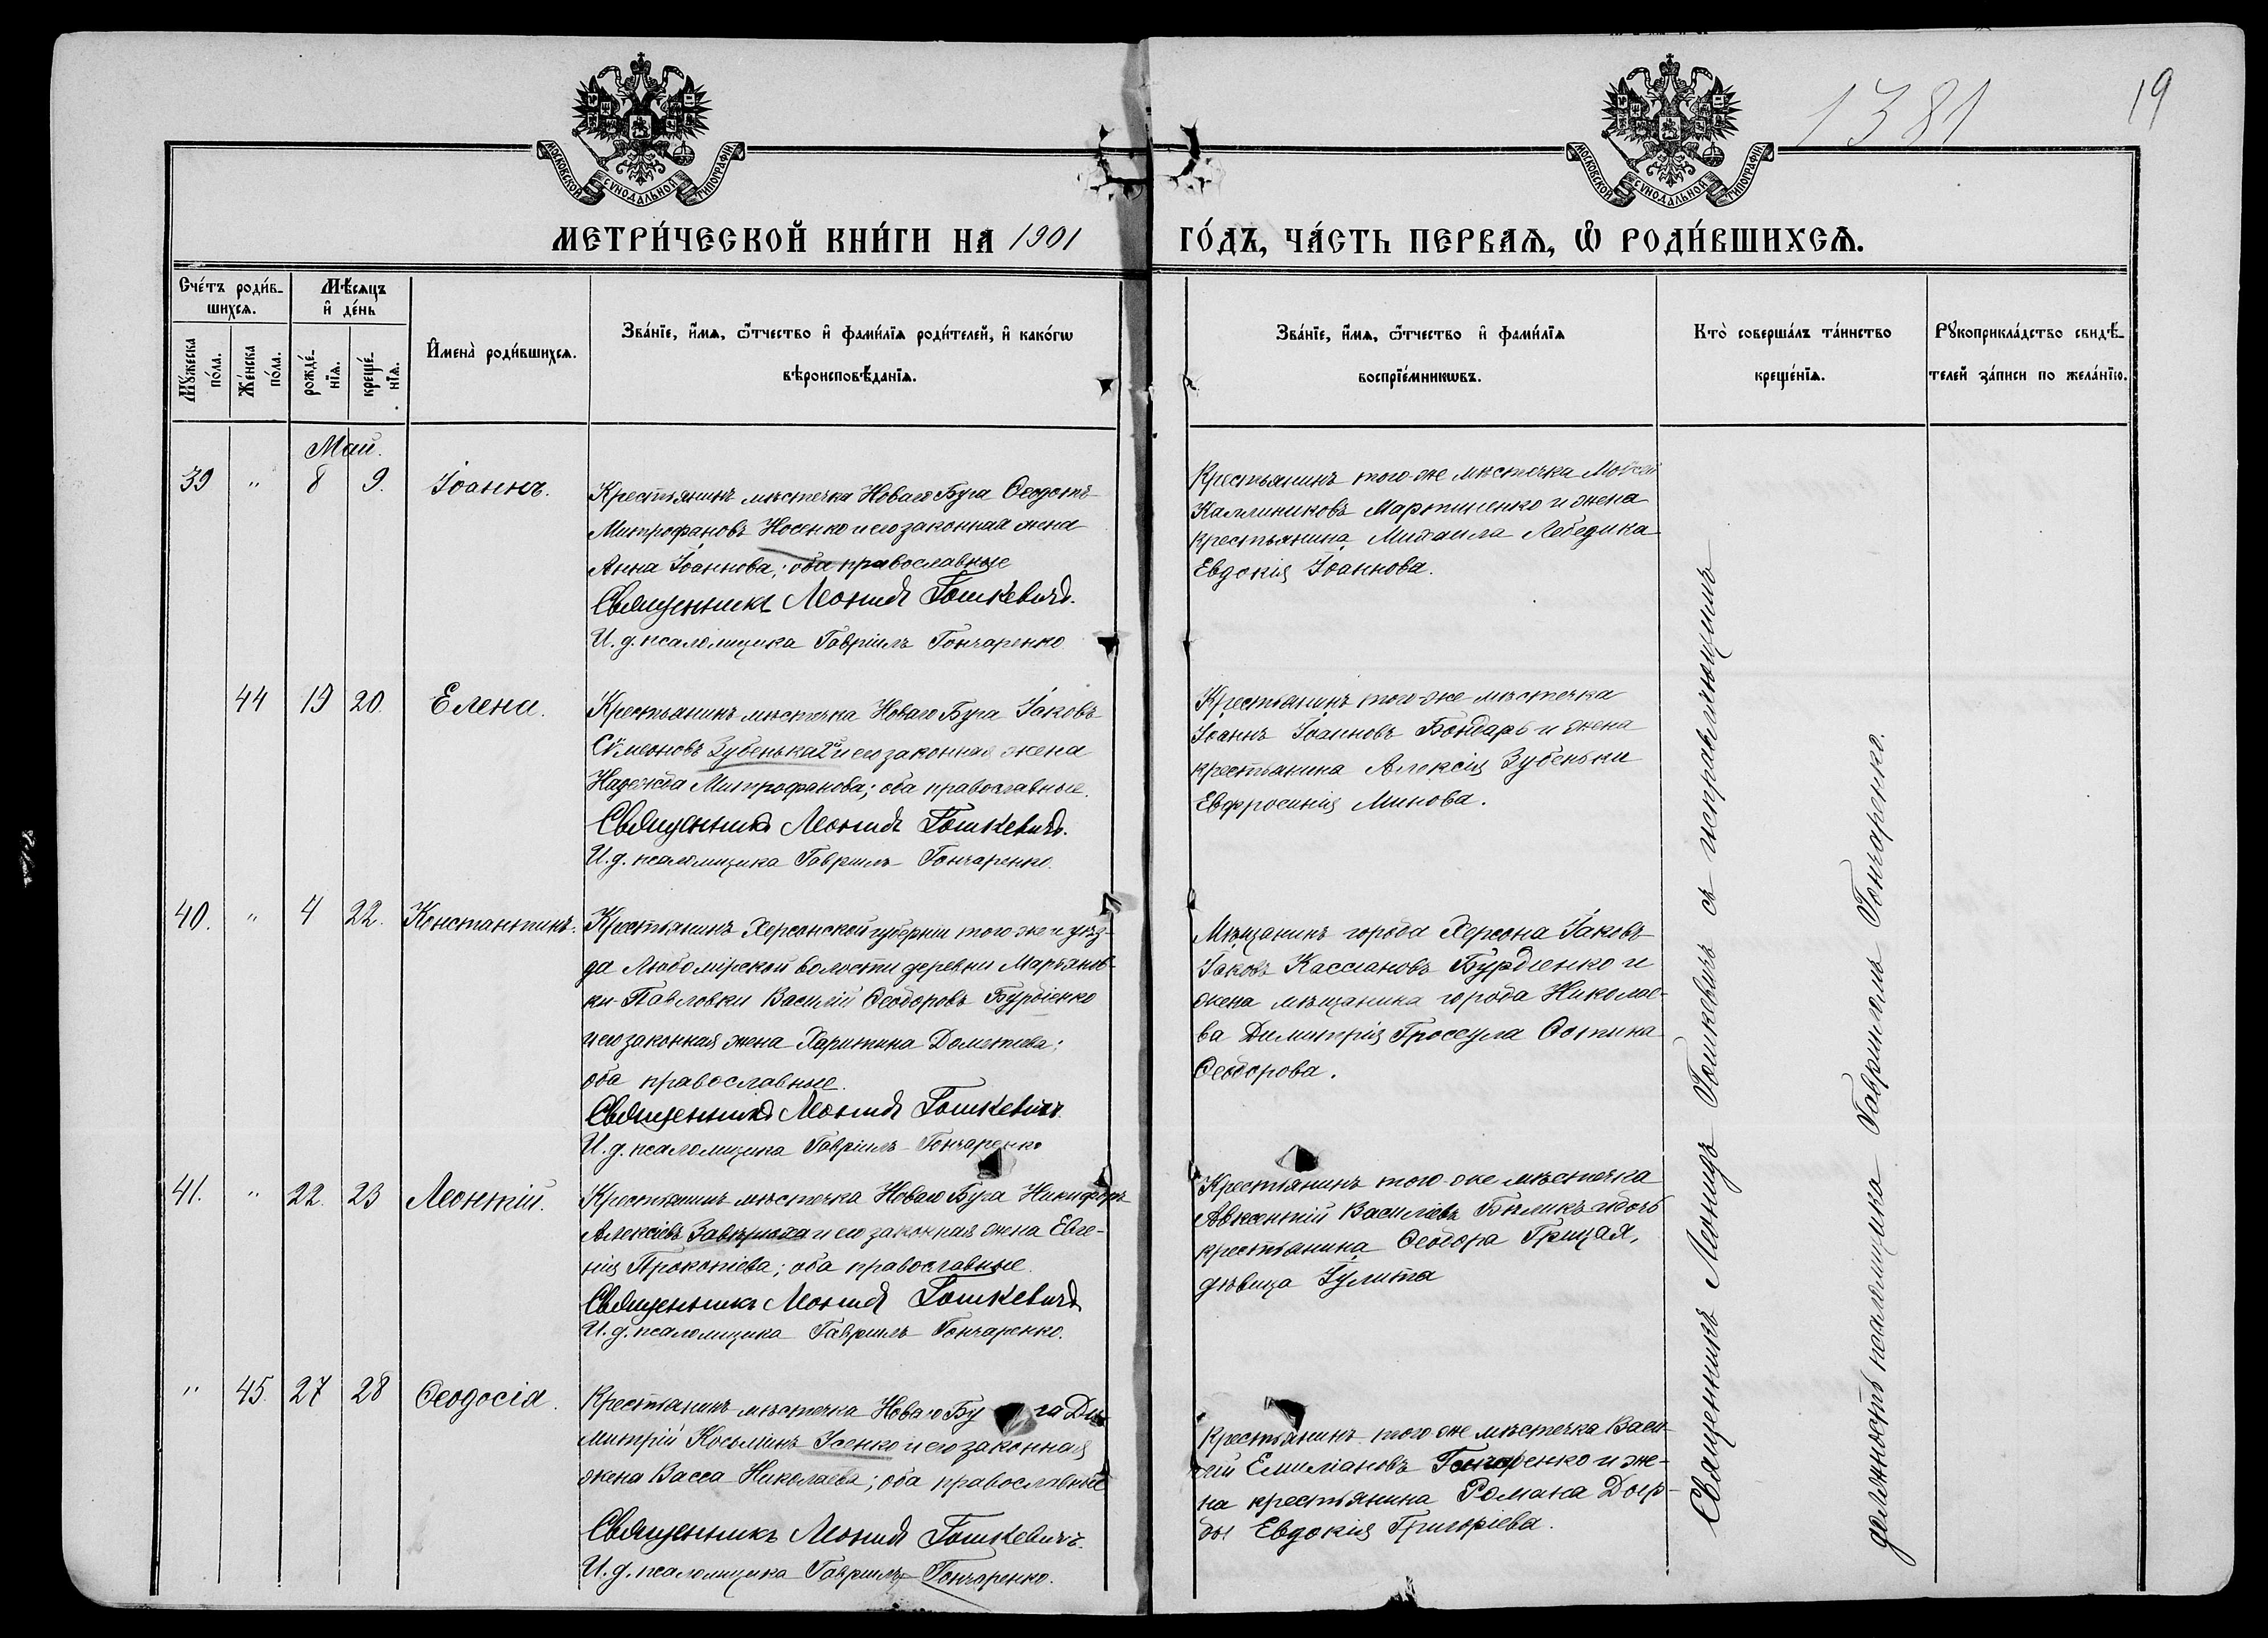 1381
19
МОСКОВСКОЙ СУНОДАЛЬНОЙ ТИПОГРАФІИ
МОСКОВСКОЙ СУНОДАЛЬНОЙ ТИПОГРАФІИ
МЕТРИ́ЧЕСКОЙ КНИ́ГИ НА 1901 ГО́ДЪ, ЧА́СТЬ ПЕРВАѦ, Ѡ҆ РОДИ́ВШИХСѦ.
Сче́тъ роди́в-
шихсѧ.
Мꙋ́жеска по́ла.
Же́нска по́ла.
Мѣ́сѧцъ
и҆ де́нь
рожде́-
нїѧ.
креще́-
нїѧ.
И҆мена̀ роди́вшихсѧ.
Зва́нїе, и҆́мѧ, ѻ҆́тчество и҆ фами́лїѧ роди́телей, и҆ како́гѡ
вѣроисповѣ́данїѧ.
Зва́нїе, и҆́мѧ, ѻ҆́тчество и҆ фами́лїѧ
воспрїе́мникѡвъ.
Кто̀ соверша́лъ та́инство
креще́нїѧ.
Рꙋкоприкла́дство свидѣ́-
телей за́писи по жела́нїю.
Май.
39 " 8 9. Іоаннъ.
Крестьянинъ мѣстечка Новаго Буга Ѳеодотъ
Митрофановъ Носенко и его законная жена
Анна Іоаннова; оба православные
Священникъ Леонидъ Гошкевичъ.
И. д. псаломщика Гавріилъ Гончаренко
Крестьянинъ того-же мѣстечка Мойсей
Каллиниковъ Мартыненко и жена
крестьянина Михаила Лебедика
Евдокія Іоаннова.
44 19 20. Елена.
Крестьянинъ мѣстечка Новаго Буга Іаковъ
Сѵмеоновъ Зубенька 2й и его законная жена
Надежда Митрофанова; оба православные.
Священникъ Леонидъ Гошкевичъ.
И. д. псаломщика Гавріилъ Гончаренко.
Крестьянинъ того-же мѣстечка
Іоаннъ Іоанновъ Бондарь и жена
крестьянина Алексія Зубеньки
Евфросинія Минова.
40. " 4 22. Константинъ.
Крестьянинъ Херсонской губерніи того же и уѣз-
да Любомірской волости деревни Марьянов-
ки-Павловки Василій Ѳеодоровъ Бурдіенко
и его законная жена Харитина Дометіева;
оба православные.
Священникъ Леонидъ Гошкевичъ
И. д. псаломщика Гавріилъ Гончаренко
Мѣщанинъ города Херсона Іаковъ
Іаковъ Кассіановъ Бурдіенко и
жена мѣщанина города Николае-
ва Димитрія Гроссула Фотина
Ѳеодорова.
41. " 22. 23 Леонтій.
Крестьянинъ мѣстечка Новаго Буга Никифоръ
Алексіевъ Завѣрюха и его законная жена Евге-
нія Прокопіева; оба православные
Священникъ Леонидъ Гошкевичъ
И. д. псаломщика Гавріилъ Гончаренко.
Крестьянинъ того-же мѣстечка
Авксентій Васильевъ Бѣликъ и дочь
крестьянина Ѳеодора Грицая,
дѣвица Іулитта
" 45. 27 28 Ѳеодосія.
Крестьянинъ мѣстечка Новаго Буга Ди-
митрій Косьминъ Усенко и его законная
жена Васса Николаева; оба православные
Священникъ Леонидъ Гошкевичъ.
И. д. псаломщика Гавріилъ Гончаренко.
Крестьянинъ того же мѣстечка Васи-
лій Емиліановъ Гончаренко и же-
на крестьянина Романа
Евдокія Григоріева.
Священникъ Леонидъ Гошкевичъ съ исправляющимъ
должность псаломщика Гавріиломъ Гончаренко.